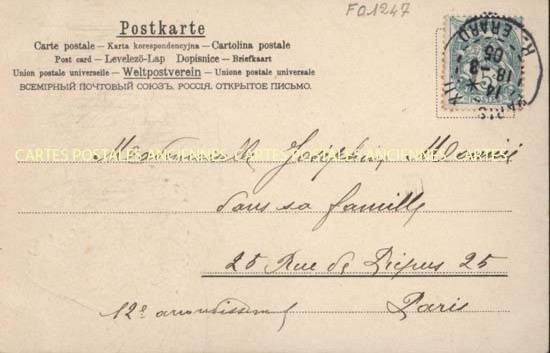 FO1247
Postkarte
Carte postale — Karta korespondencyjna — Cartolina postale
Post card — Levelező-Lap Dopisnice — Briefkaart
Union postale universelle — Weltpostverein — Unione postale universale
ВСЕМІРНЫЙ ПОЧТОВЫЙ СОЮЗЪ. РОССІЯ. ОТКРЫТОЕ ПИСЬМО.
PARIS XII
R. ERARD
14
18 - 8
05
5
CARTES POSTALES ANCIENNES CARTES POSTALES ANCIENNES CARTES
Joséphine
dans sa famille
25 Rue de Picpus 25
12e arrondissement Paris